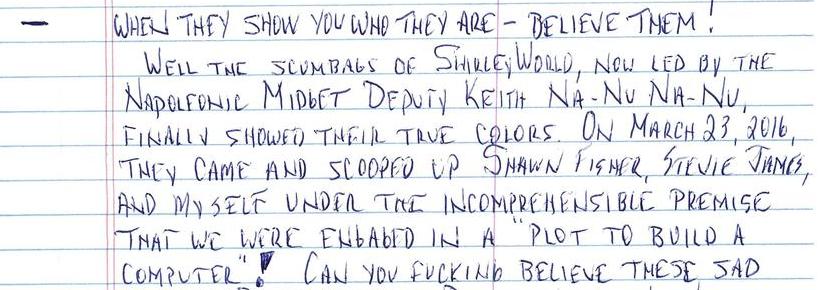 — WHEN THEY SHOW YOU WHO THEY ARE – BELIEVE THEM!
WELL THE SCUMBAGS OF SHIRLEYWORLD, NOW LED BY THE
NAPOLEONIC MIDGET DEPUTY KEITH NA-NU NA-NU,
FINALLY SHOWED THEIR TRUE COLORS. ON MARCH 23, 2016,
THEY CAME AND SCOOPED UP SHAWN FISHER, STEVIE JAMES,
AND MYSELF UNDER THE INCOMPREHENSIBLE PREMISE
THAT WE WERE ENGAGED IN A "PLOT TO BUILD A
COMPUTER"! CAN YOU FUCKING BELIEVE THESE SAD